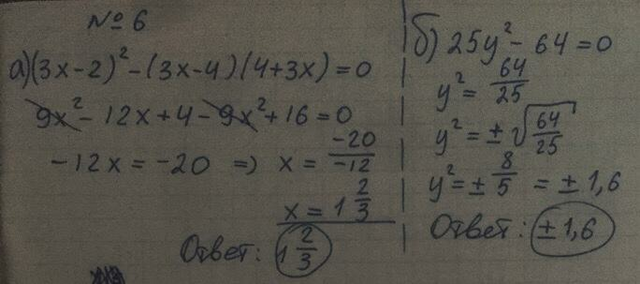 № 6
а) (3x-2)² - (3x-4)(4+3x) = 0
9x² - 12x + 4 - 9x² + 16 = 0
-12x = -20 => x = -20/-12
x = 1 2/3
Ответ: 1 2/3
б) 25y² - 64 = 0
y² = 64/25
y² = ± √64/25
y² = ± 8/5 = ± 1,6
Ответ: ± 1,6